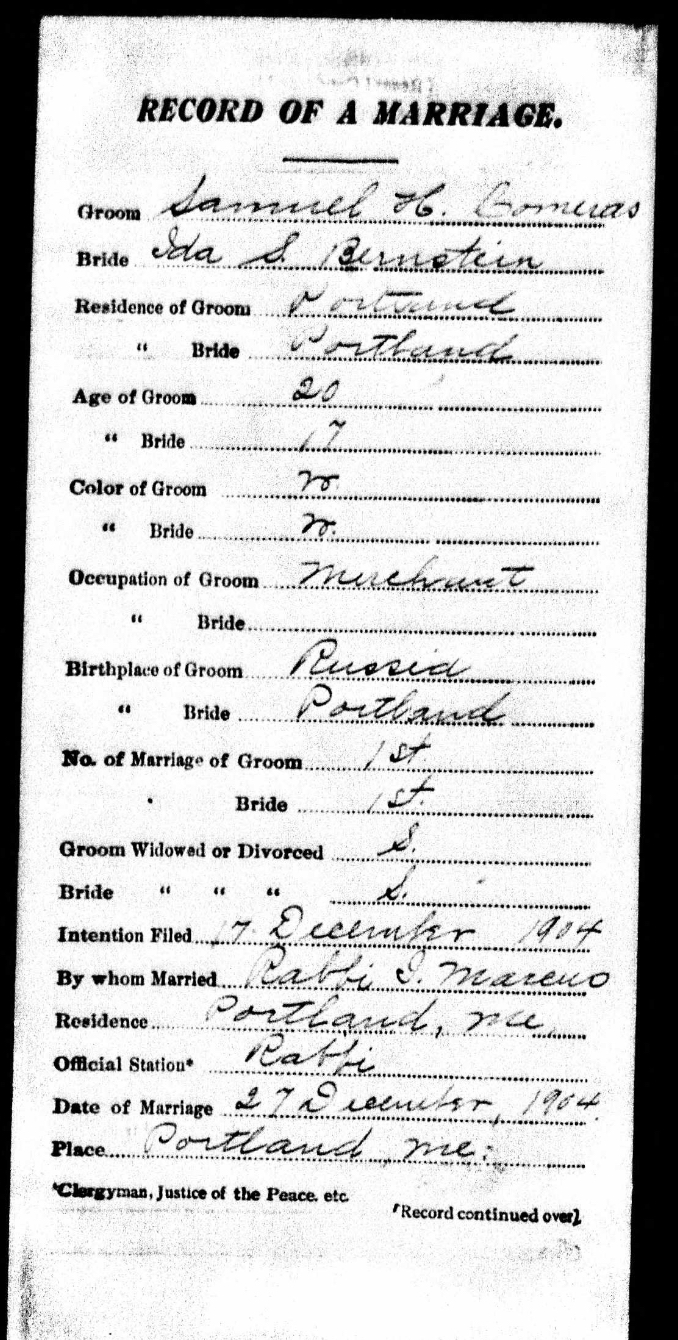 RECORD OF A MARRIAGE.
Groom Samuel H. Comeras
Bride Ida S. Bernstein
Residence of Groom Portland
" Bride Portland
Age of Groom 20
" Bride 17
Color of Groom W.
" Bride W.
Occupation of Groom Merchant
" Bride
Birthplace of Groom Russia
" Bride Portland
No. of Marriage of Groom 1st.
" Bride 1st.
Groom Widowed or Divorced S.
Bride " " " S.
Intention Filed 17 December 1904
By whom Married Rabbi I. Marcus
Residence Portland, Me.
Official Station* Rabbi
Date of Marriage 27 December, 1904.
Place Portland, Me.
*Clergyman, Justice of the Peace. etc.
[Record continued over].